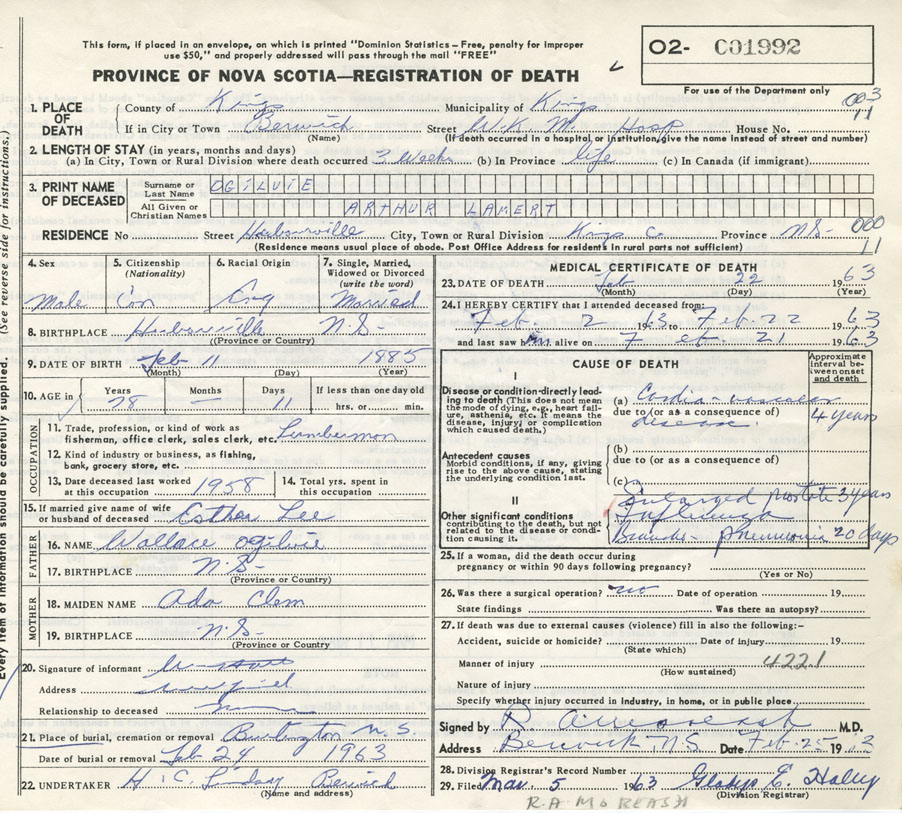 This form, if placed in an envelope, on which is printed "Dominion Statistics – Free, penalty for improper
use $50," and properly addressed will pass through the mail "FREE"
02- C01992
PROVINCE OF NOVA SCOTIA—REGISTRATION OF DEATH
For use of the Department only
003
11
1. PLACE OF DEATH County of Kings Municipality of Kings
If in City or Town Berwick Street W.K.M. Hosp House No.
(Name) (If death occurred in a hospital, or institution, give name instead of street and number)
2. LENGTH OF STAY (in years, months and days)
(a) In City, Town or Rural Division where death occurred 3 Weeks (b) In Province life (c) In Canada (if immigrant).
3. PRINT NAME OF DECEASED Surname or Last Name OGILVIE
All Given or Christian Names ARTHUR LAMERT
RESIDENCE No Street Harbourville City, Town or Rural Division Kings Co. Province N.S- 000
11
(Residence means usual place of abode. Post Office Address for residents in rural parts not sufficient)
4. Sex Male
5. Citizenship (Nationality) Can
6. Racial Origin Eng
7. Single, Married, Widowed or Divorced (write the word) Married
8. BIRTHPLACE Harbourville N.S-
(Province or Country)
9. DATE OF BIRTH Feb 11 1885
(Month) (Day) (Year)
10. AGE in Years 78 Months – Days 11 If less than one day old hrs. or min.
OCCUPATION
11. Trade, profession, or kind of work as
fisherman, office clerk, sales clerk, etc. Lumberman
12. Kind of industry or business, as fishing,
bank, grocery store, etc.
13. Date deceased last worked at this occupation 1958 14. Total yrs. spent in this occupation
15. If married give name of wife
or husband of deceased Esther Lee
FATHER
16. NAME Wallace Ogilvie
17. BIRTHPLACE N.S-
(Province or Country)
MOTHER
18. MAIDEN NAME Ada Clem
19. BIRTHPLACE N.S-
(Province or Country
20. Signature of informant
Address
Relationship to deceased
21. Place of burial, cremation or removal Burlington N.S.
Date of burial or removal Feb 24 1963
22. UNDERTAKER H.C. Lindsay Berwick
(Name and address)
MEDICAL CERTIFICATE OF DEATH
23. DATE OF DEATH Feb 22 1963
(Month) (Day) (Year)
24. I HEREBY CERTIFY that I attended deceased from:
Feb. 2 1963 to Feb. 22 1963
and last saw him alive on Feb. 21 1963
CAUSE OF DEATH
Approximate interval between onset and death
I
Disease or condition directly leading to death (This does not mean the mode of dying, e.g., heart failure, asthenia, etc. It means the disease, injury, or complication which caused death.)
(a) Cardio-vascular
due to (or as a consequence of) 4 years
disease.
Antecedent causes
Morbid conditions, if any, giving rise to the above cause, stating the underlying condition last.
(b)
due to (or as a consequence of)
(c)
II
Other significant conditions
contributing to the death, but not related to the disease or condition causing it.
Enlarged prostate 3 years
Influenza
Broncho- pneumonia 20 days
25. If a woman, did the death occur during
pregnancy or within 90 days following pregnancy?
(Yes or No)
26. Was there a surgical operation? no Date of operation 19
State findings Was there an autopsy?
27. If death was due to external causes (violence) fill in also the following:-
Accident, suicide or homicide? Date of injury 19
(State which)
Manner of injury 4221
(How sustained)
Nature of injury
Specify whether injury occurred in Industry, in home, or in public place
Signed by R. A. M.D.
Address Berwick, N.S. Date Feb-25 1963
28. Division Registrar's Record Number
29. Filed Mar. 5 1963 Gladys E. Haley
(Division Registrar)
R.A. MOREASH
(See reverse side for instructions.)
Every item of information should be carefully supplied.